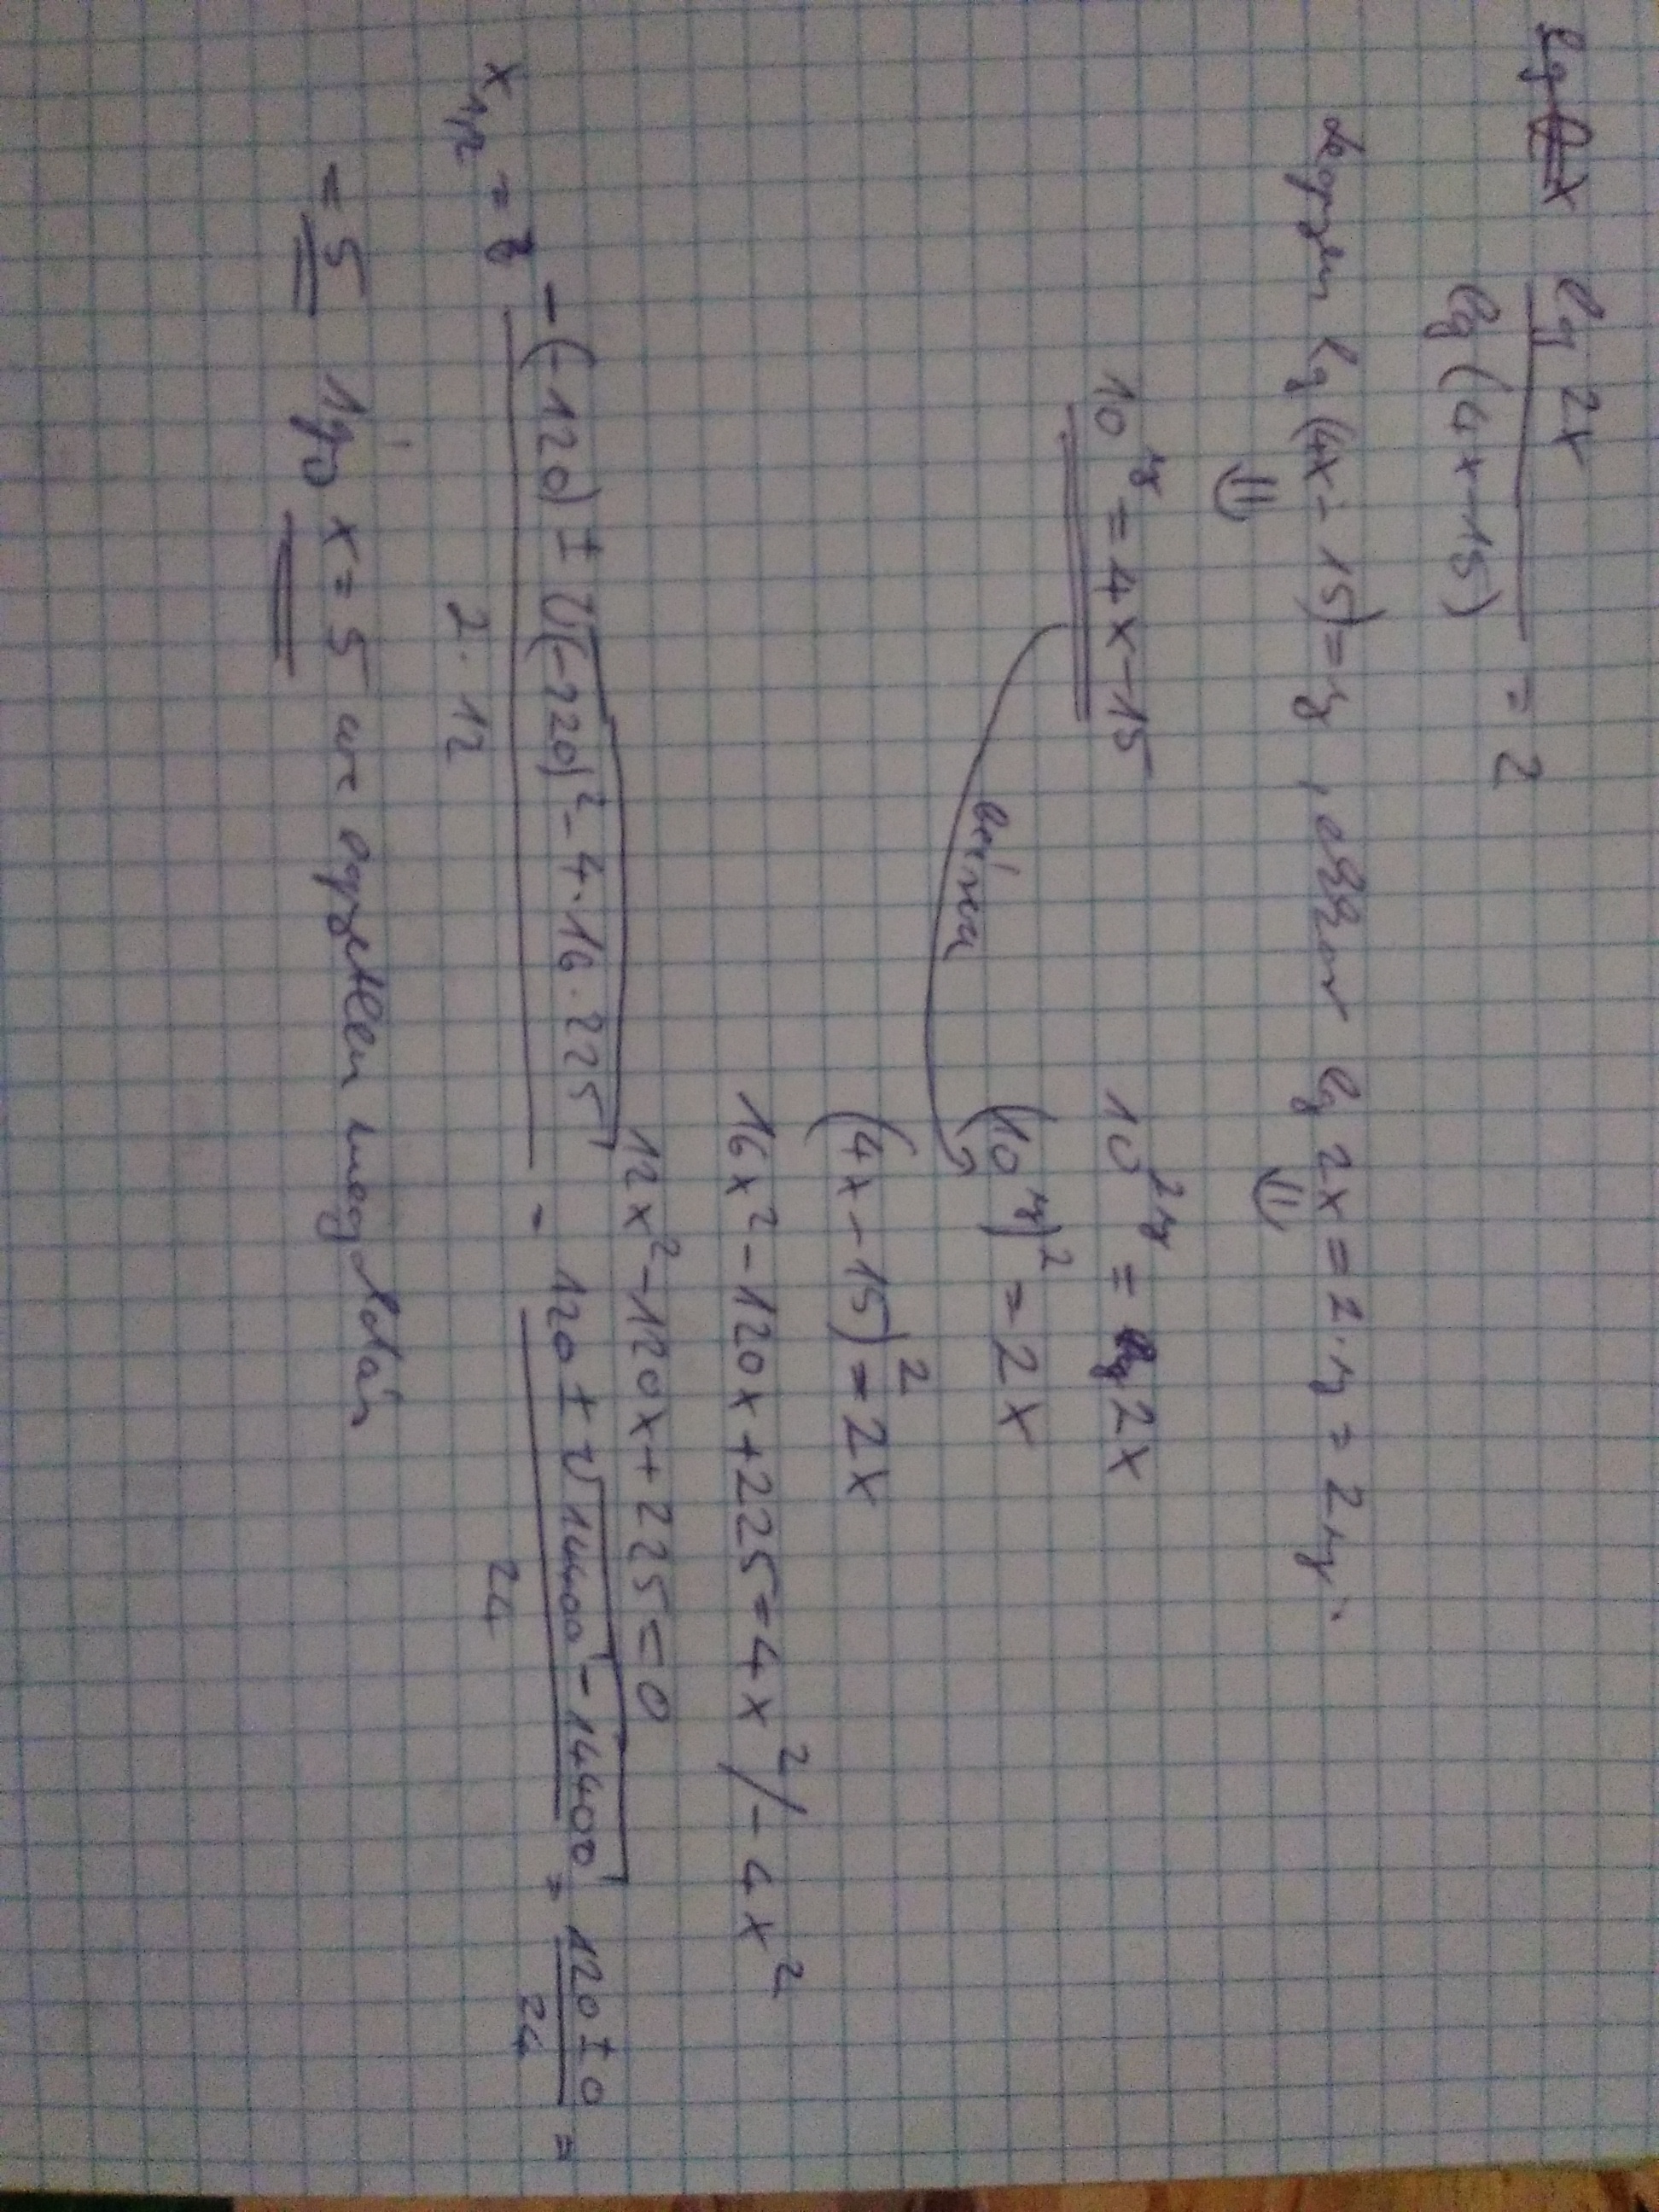 lg x lg 2x / lg (4x-15) = 2
Legyen lg (4x-15) = y, ekkor lg 2x = 2·y = 2y.
⇓ ⇓
10^y = 4x-15 10^2y = 2x
beírva (10^y)^2 = 2x
(4x-15)^2 = 2x
16x^2-120x+225=4x^2 /-4x^2
12x^2-120x+225=0
x1,2 = -(-120) ± √(-120)^2-4·16·225 / 2·12 = 120 ± √14400-14400 / 24 = 120±0 / 24 =
= 5 Így x=5 az egyetlen megoldás